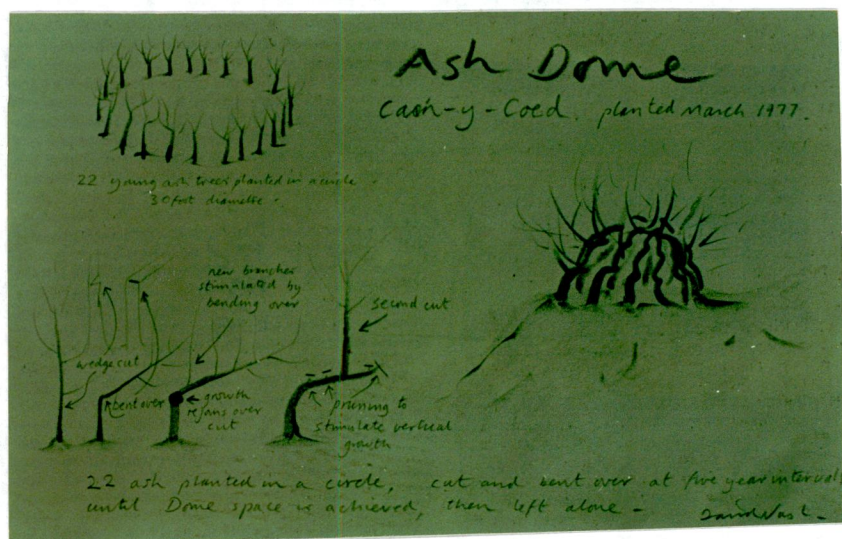 Ash Dome
Caen-y-Coed. planted March 1977.
22 young ash trees planted in a circle -
30 foot diameter -
new branches
stimulated by
bending over
second cut
wedge cut
bent over
growth
rejoins over
cut
pruning to
stimulate vertical
growth
22 ash planted in a circle, cut and bent over at five year intervals
until Dome space is achieved, then left alone -
David Nash -